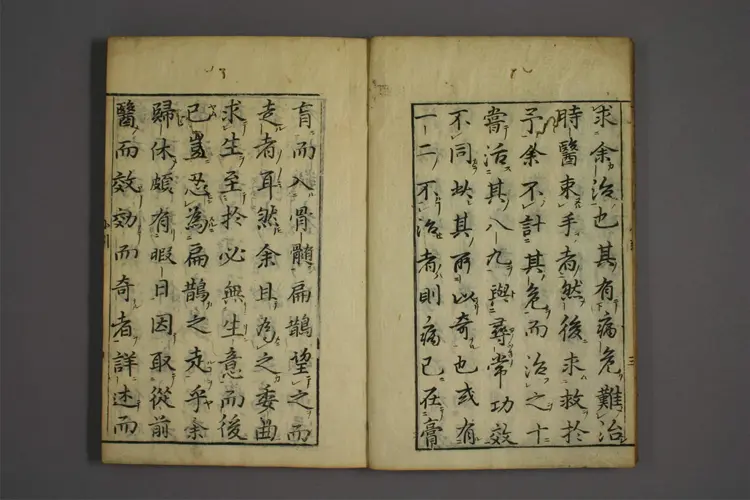 求余治也其有病危難治
時醫束手者然後求救於
予余不計其危而治之十
嘗活其八九與尋常功效
不同此其所以奇也或有
一二不治者則病已在膏
肓而入骨髓扁鵲望之而
走者耳然余且為之委曲
求生至於必無生意而後
已豈忍為扁鵲之走乎余
歸休頗有暇日因取從前
醫而效効而奇者詳述而